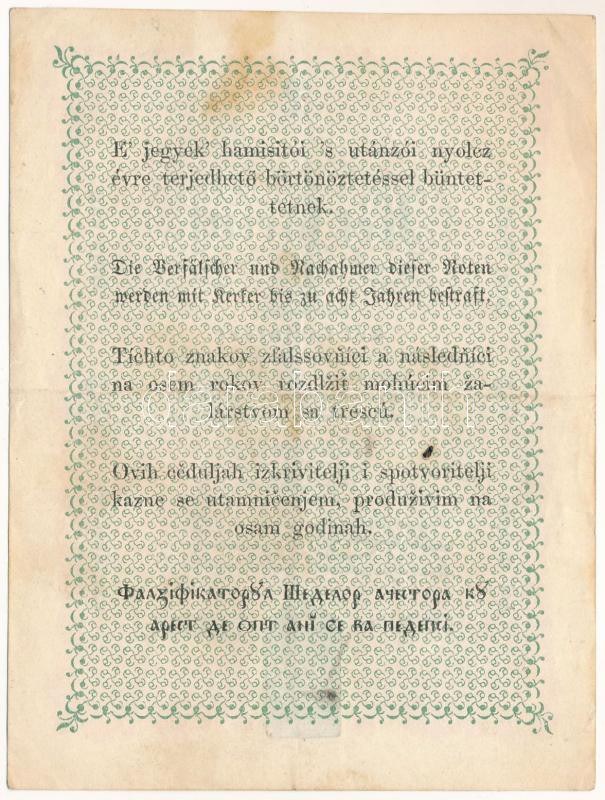 E' jegyek' hamisitói 's utánzói nyolcz
évre terjedhető börtönöztetéssel büntet-
tetnek.
Die Verfälscher und Nachahmer dieser Noten
werden mit Kerker bis zu acht Jahren bestraft.
Tíchto znakov zfalssovňíci a následňíci
na osem rokov rozdlžit mohúcim ža-
lárstvom sa trescú.
Ovih cèduljah izkrivitelji i spotvoritelji
kazne se utamničenjem, produživim na
osam godinah.
Фалꙁіфікаторꙋ́л Шеделор ачестора кꙋ
арест де ѻпт анĭ се ва педепсі.
darabanth